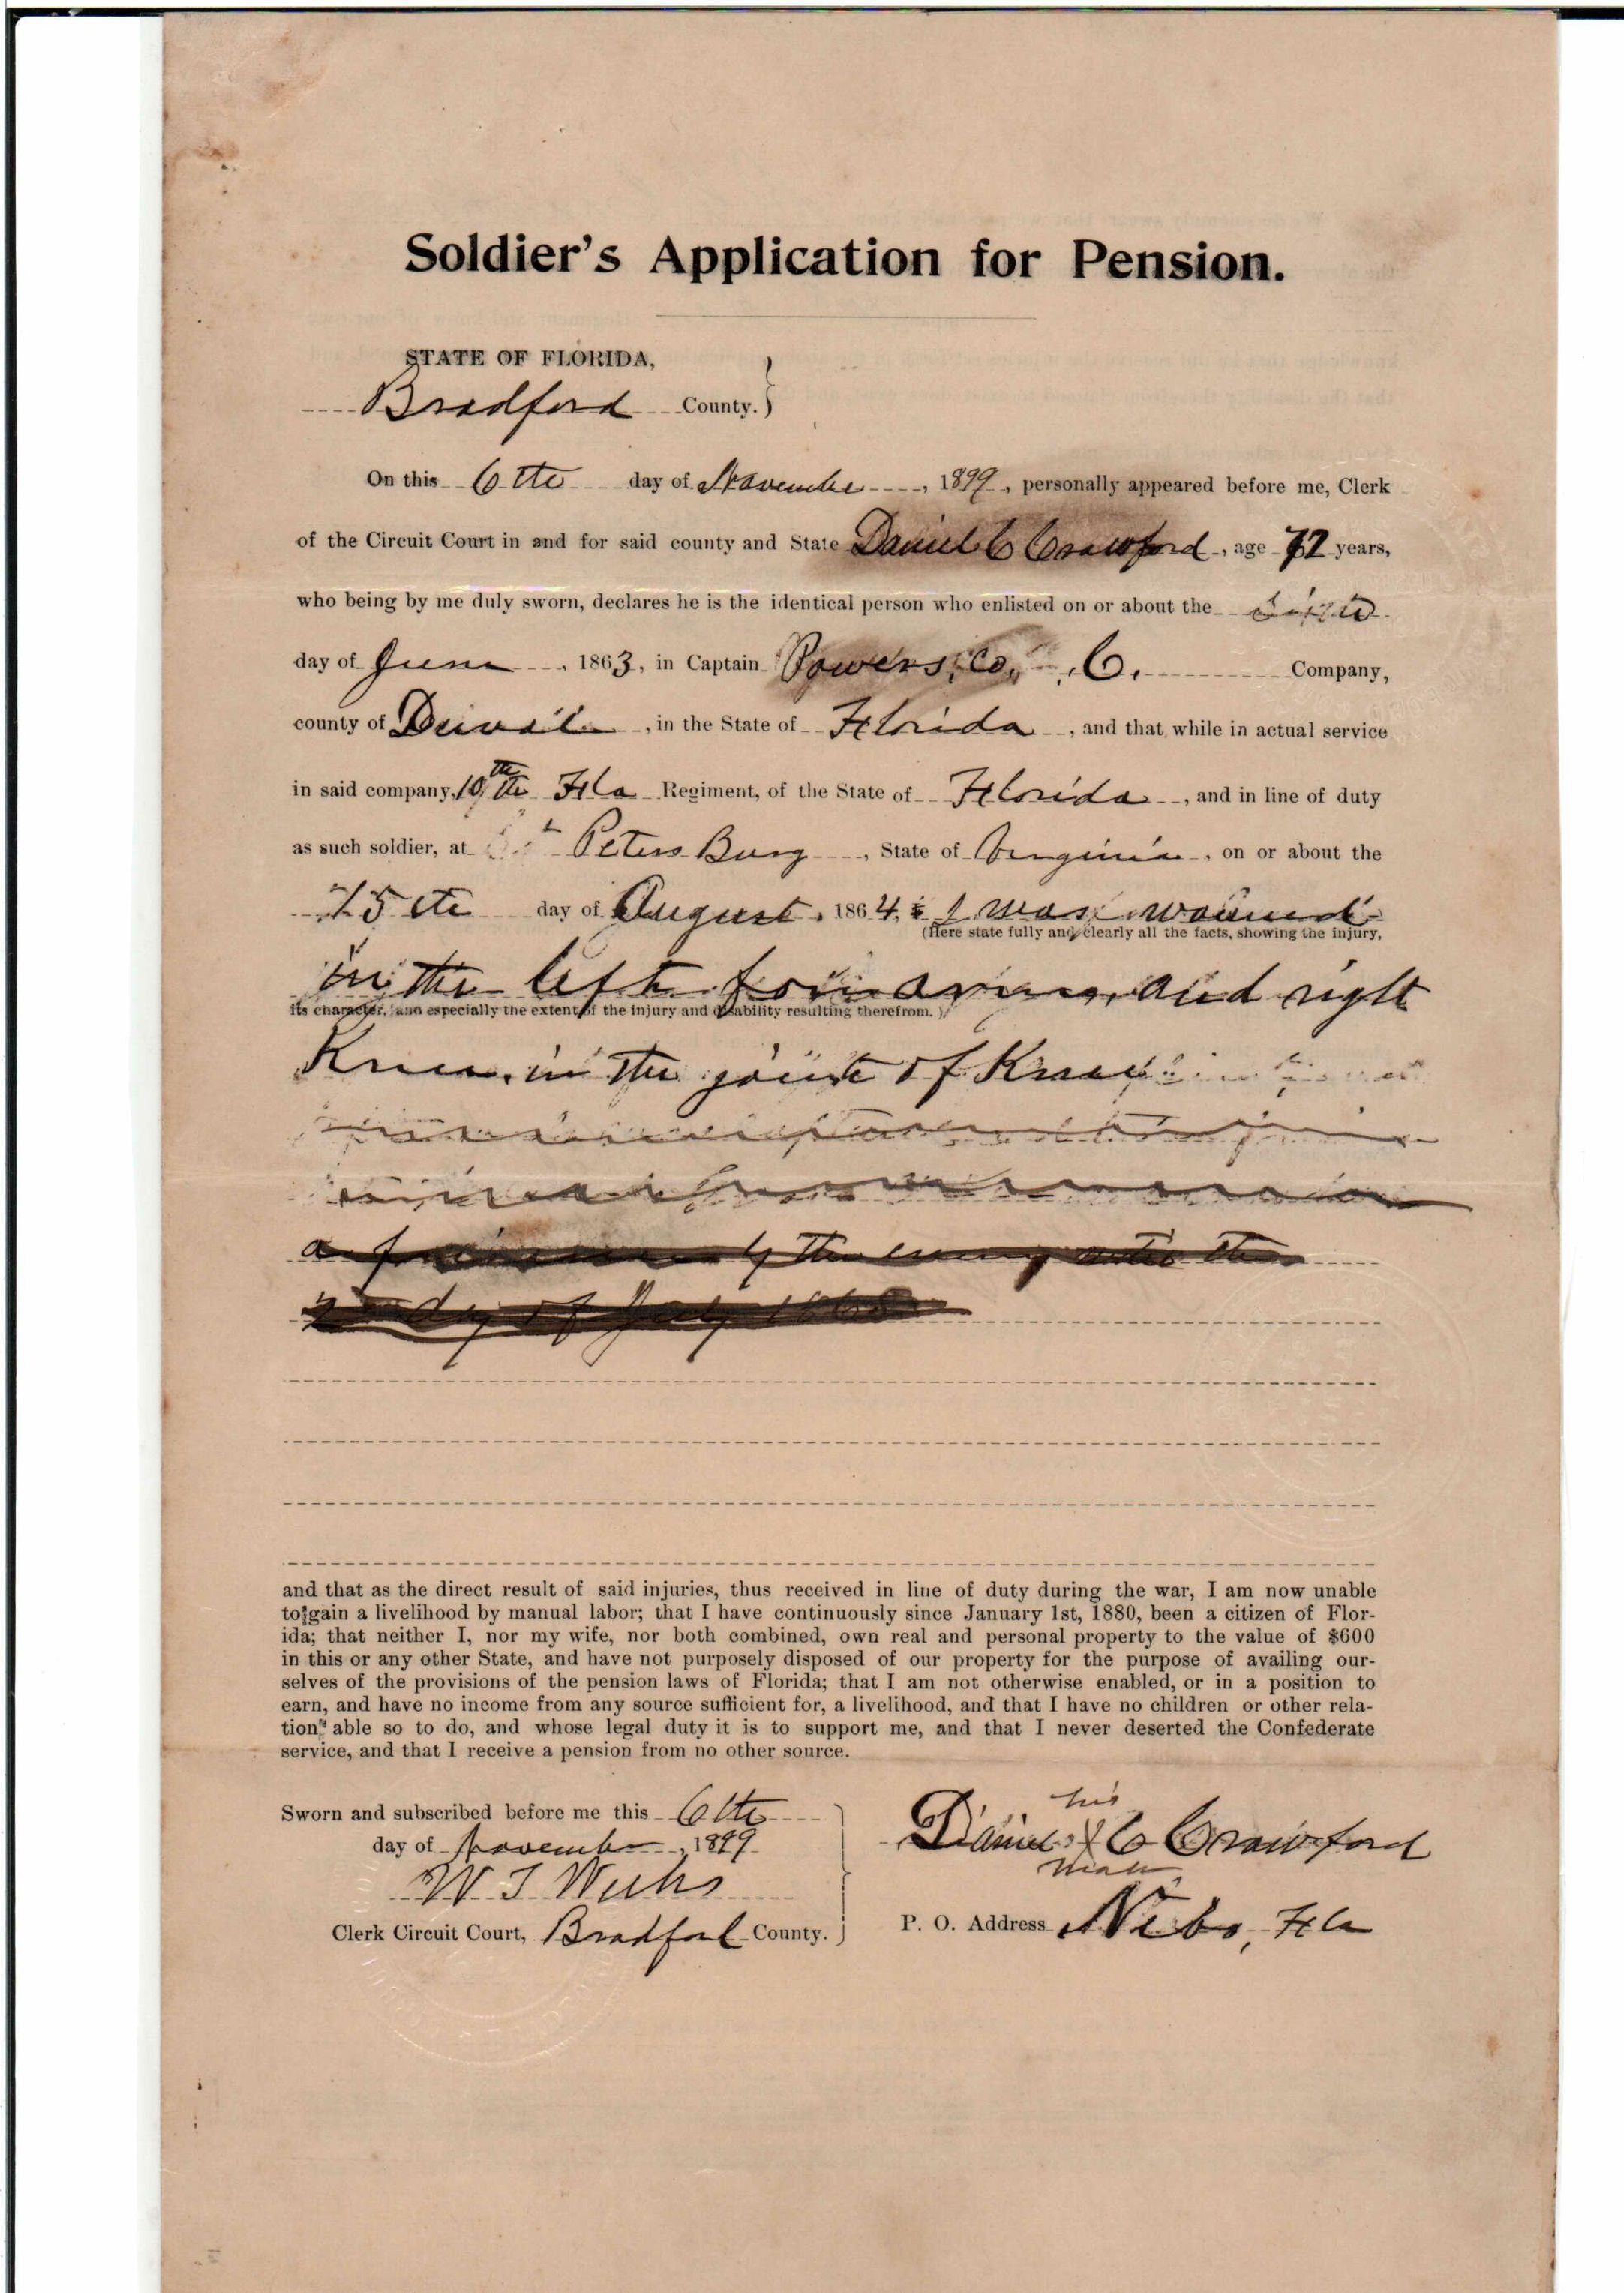 Soldier's Application for Pension.
STATE OF FLORIDA,
Bradford County.
On this 6th day of November, 1899, personally appeared before me, Clerk
of the Circuit Court in and for said county and State Daniel C Crawford, age 72 years,
who being by me duly sworn, declares he is the identical person who enlisted on or about the
day of June, 1863, in Captain Powers, Co, C. Company,
county of Duval, in the State of Florida, and that while in actual service
in said company, 10th Fla Regiment, of the State of Florida, and in line of duty
as such soldier, at Peters Burg, State of Virginia, on or about the
15th day of August, 1864, I was wound
(Here state fully and clearly all the facts, showing the injury,
in the left fore arm, and right
its character, and especially the extent of the injury and disability resulting therefrom.)
Knee, in the joint of Knee
a by the enemy the
day of July
and that as the direct result of said injuries, thus received in line of duty during the war, I am now unable
to gain a livelihood by manual labor; that I have continuously since January 1st, 1880, been a citizen of Flor-
ida; that neither I, nor my wife, nor both combined, own real and personal property to the value of $600
in this or any other State, and have not purposely disposed of our property for the purpose of availing our-
selves of the provisions of the pension laws of Florida; that I am not otherwise enabled, or in a position to
earn, and have no income from any source sufficient for, a livelihood, and that I have no children or other rela-
tion able so to do, and whose legal duty it is to support me, and that I never deserted the Confederate
service, and that I receive a pension from no other source.
Sworn and subscribed before me this 6th
day of November, 1899
W T Weeks
Clerk Circuit Court, Bradford County.
his
Daniel X C Crawford
mark
P. O. Address Nebo, Fla